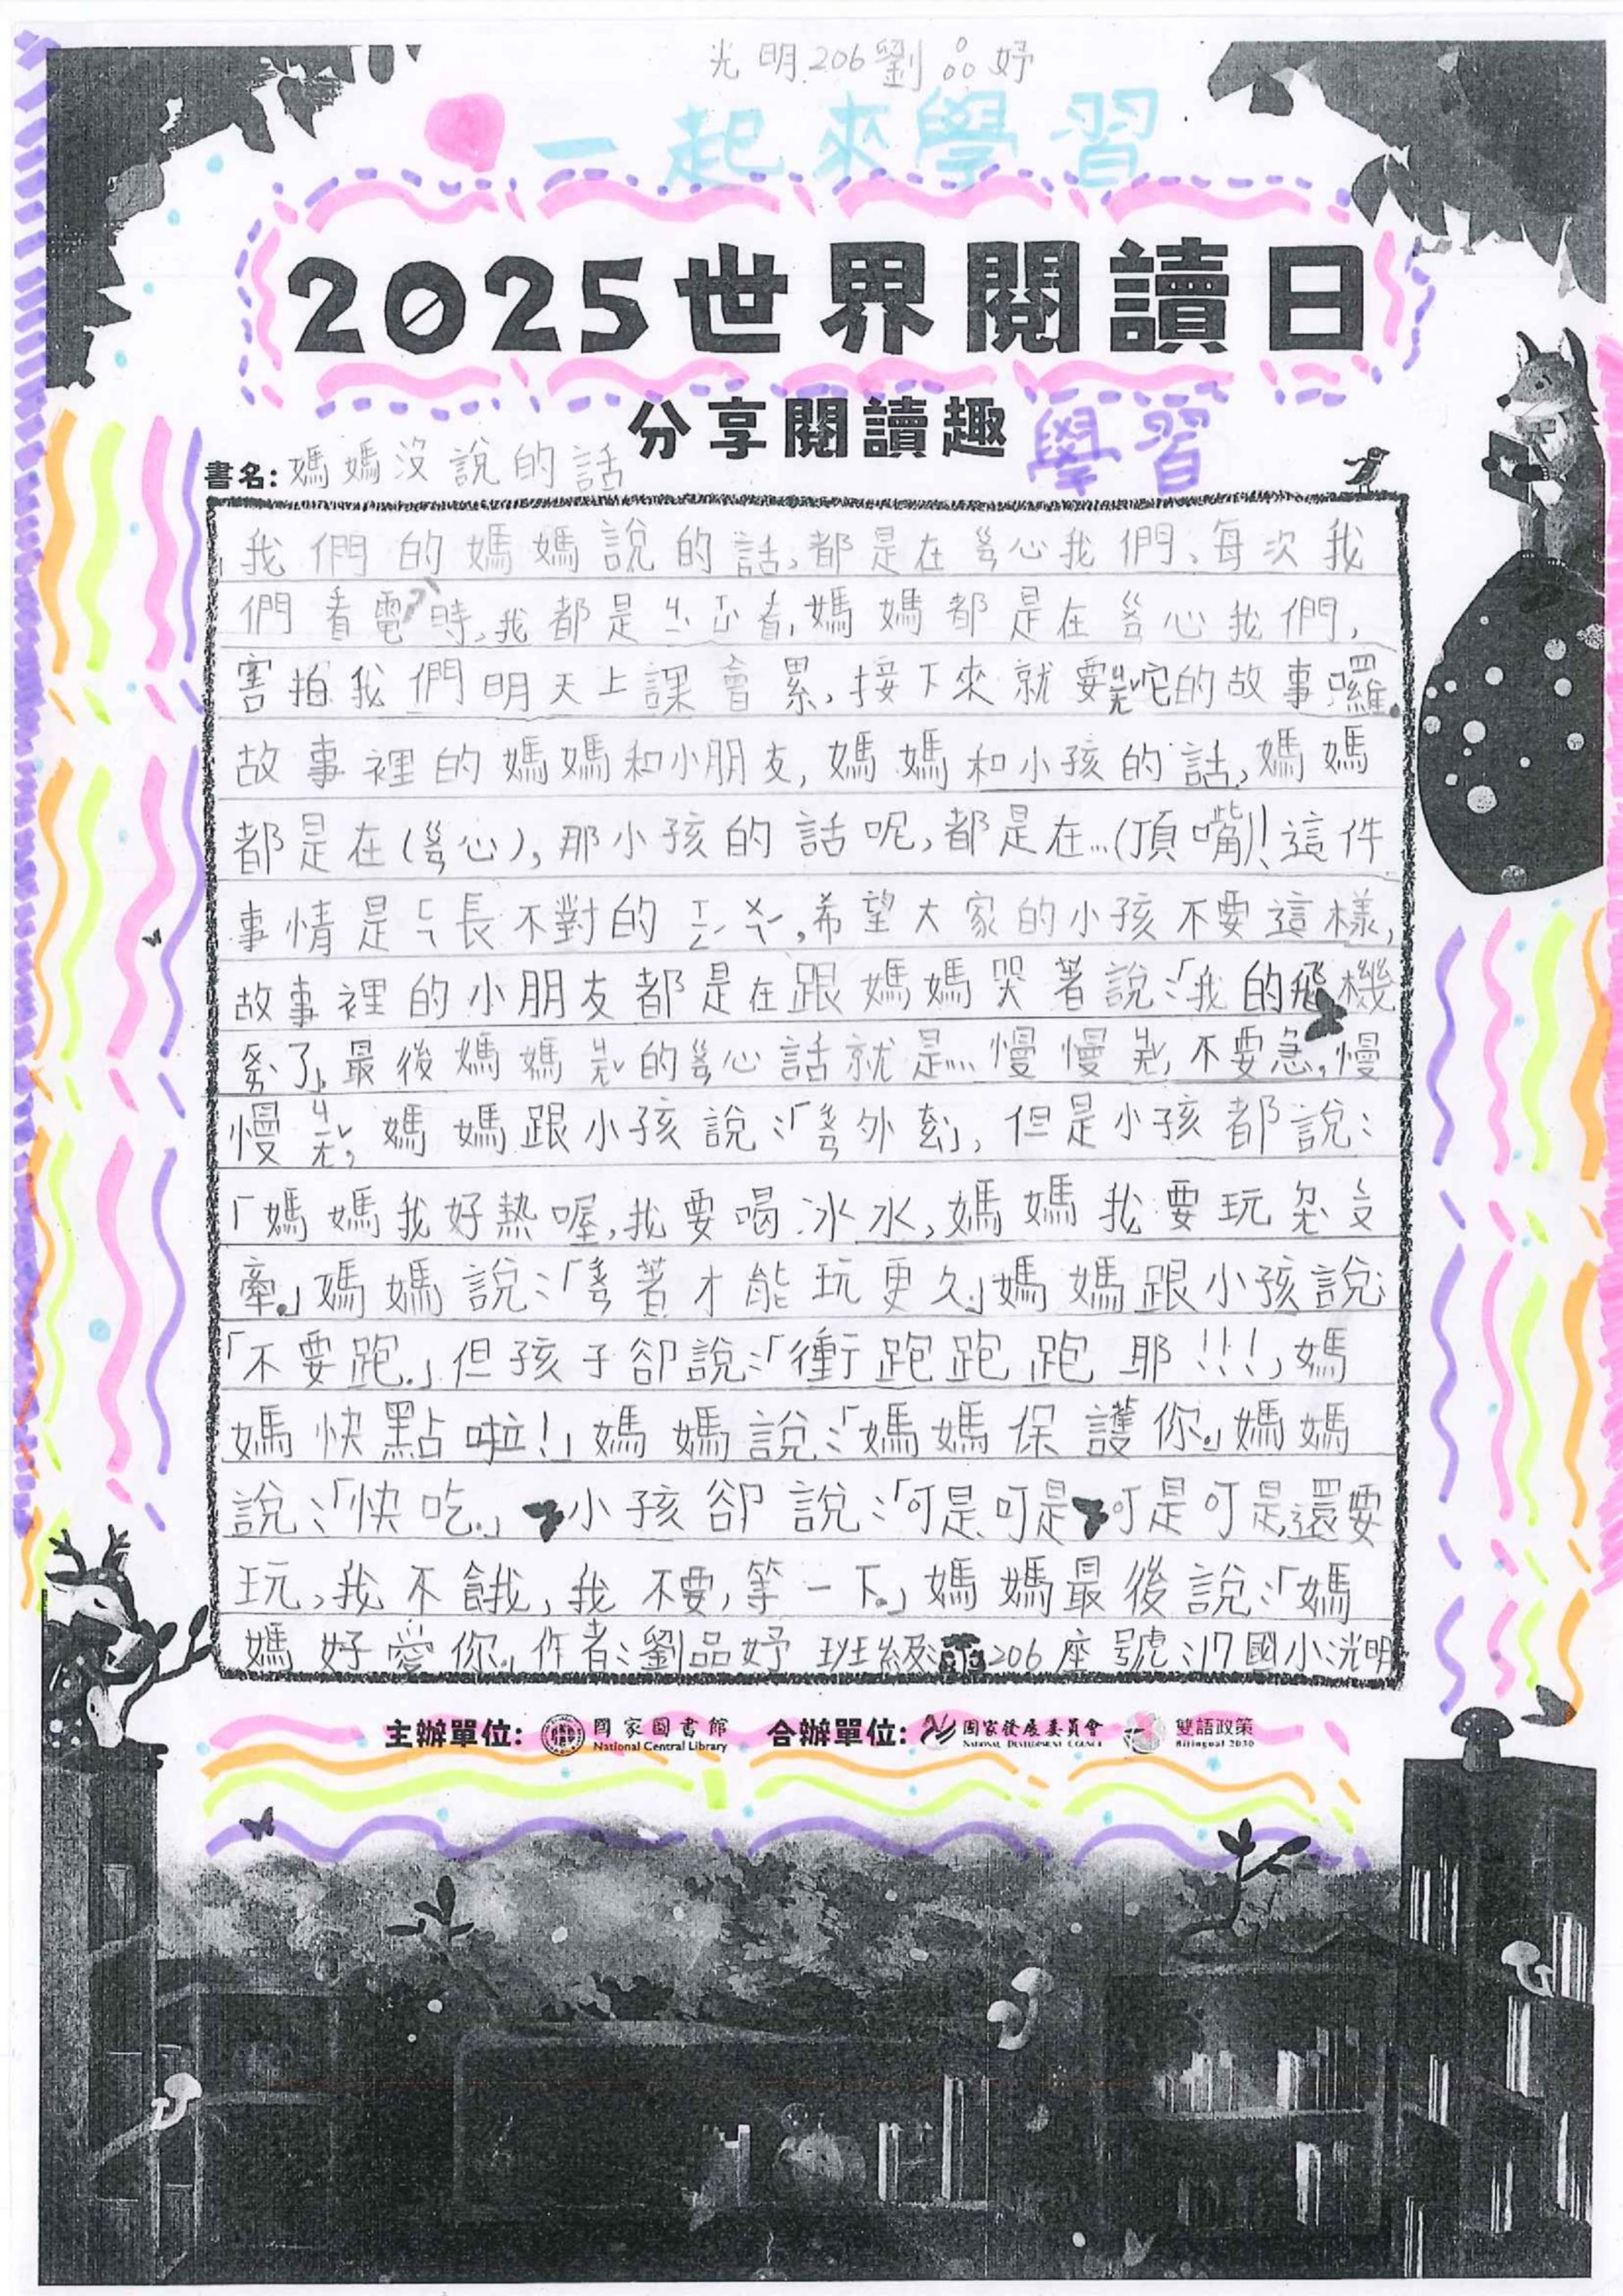 光明206劉品妤
一起來學習
2025世界閱讀日
分享閱讀趣 學習
書名:媽媽沒說的話
我們的媽媽說的話,都是在ㄍㄢ心我們,每次我
們看電時,我都是ㄐㄒ看,媽媽都是在ㄍㄢ心我們,
害拍我們明天上課會累,接下來就要的故事囉。
故事裡的媽媽和小朋友,媽媽和小孩的話,媽媽
都是在(心),那小孩的話呢,都是在…(頂嘴)!這件
事情是長不對的,希望大家的小孩不要這樣,
故事裡的小朋友都是在跟媽媽哭著說:「我的飛機
了」最後媽媽的心話就是…慢慢,不要急,慢
慢,媽媽跟小孩說:「外」,但是小孩都說:
「媽媽我好熱喔,我要喝冰水,媽媽我要玩
牽。」媽媽說:「著才能玩更久」媽媽跟小孩說:
「不要跑。」但孩子卻說:「衝跑跑跑耶!!!」媽
媽快點啦!」媽媽說:「媽媽保護你。」媽媽
說:「快吃。」小孩卻說:「可是可是可是可是,還要
玩,我不餓,我不要,等一下。」媽媽最後說:「媽
媽好愛你。」作者:劉品妤 班級:206座號:17國小:光明
主辦單位: 國家圖書館 National Central Library 合辦單位: 國家發展委員會 National Development Council 雙語政策 Bilingual 2030